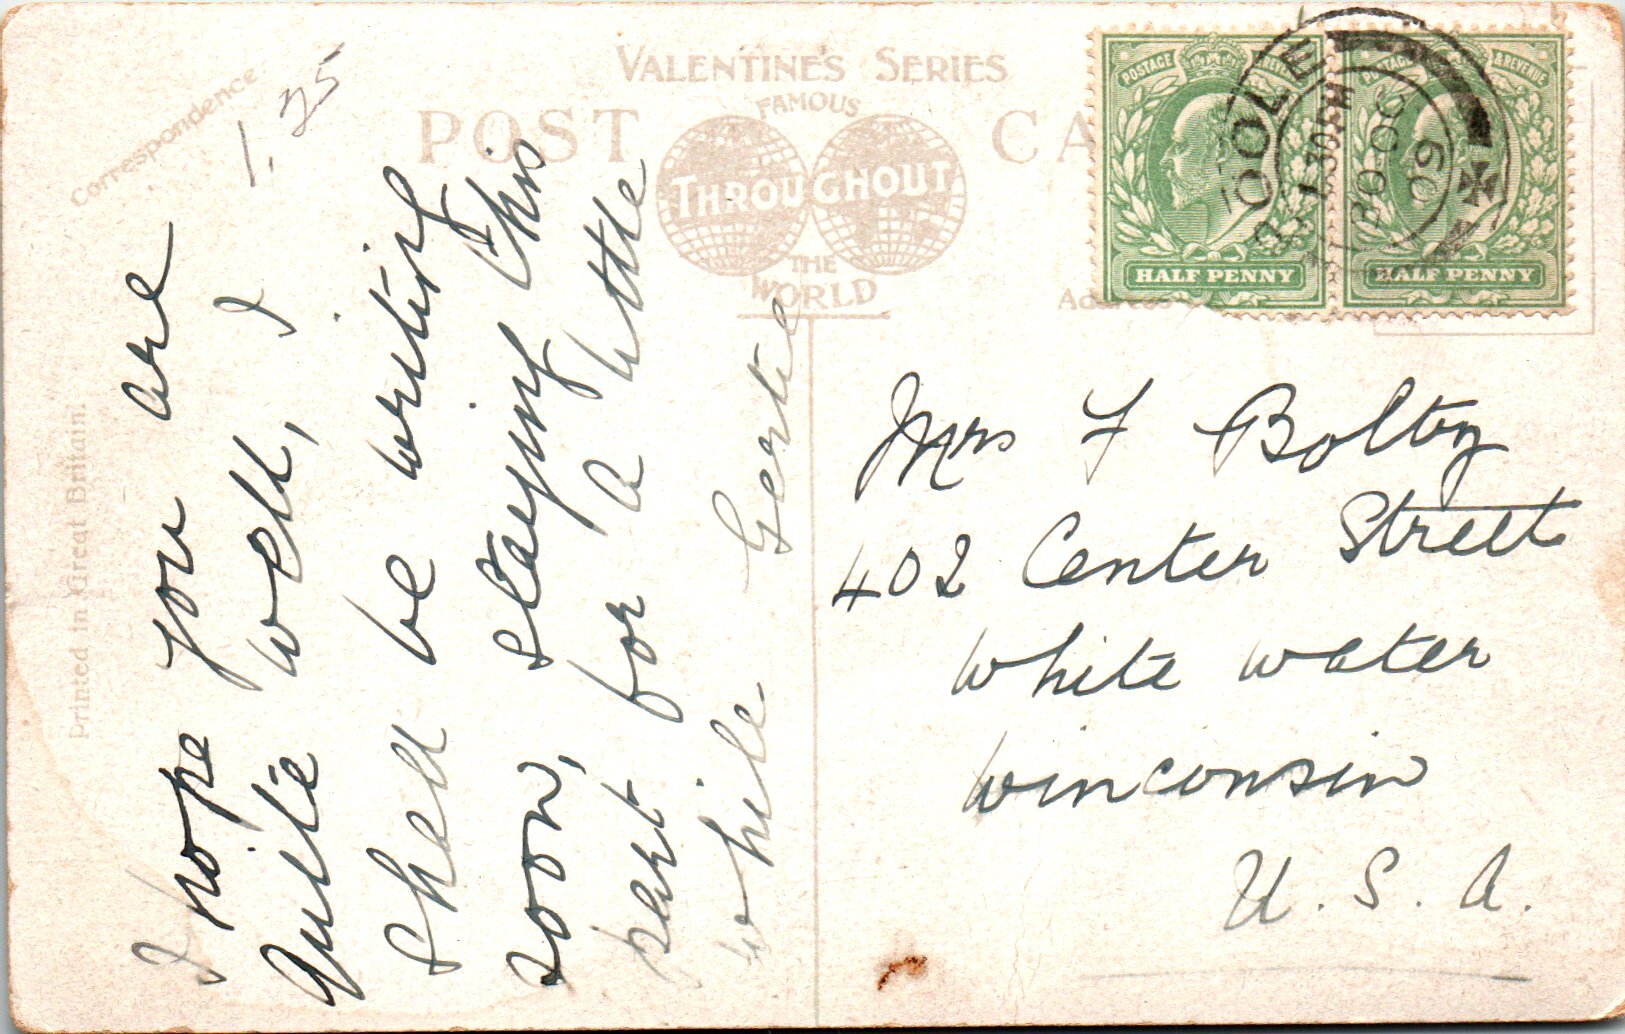 VALENTINE'S SERIES
FAMOUS
POST CA
THROUGHOUT
THE
WORLD
Correspondence
1.25
Printed in Great Britain.
I hope you are
quite well, I
shall be writing
soon, staying this
part for a little
while Gertie
POSTAGE & REVENUE
HALF PENNY
& REVENUE
HALF PENNY
OOLE
1.30 PM
OC 30
09
Mrs F Bolton
402 Center Street
White water
Winconsin
U.S.A.